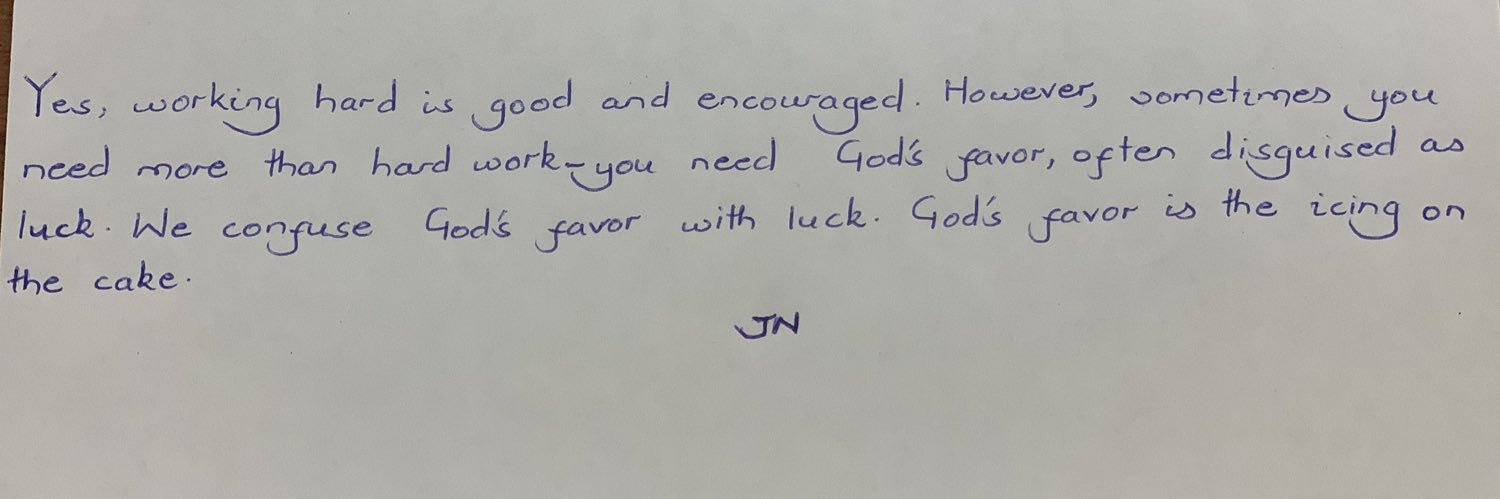 Yes, working hard is good and encouraged. However, sometimes you
need more than hard work-you need God's favor, often disguised as
luck. We confuse God's favor with luck. God's favor is the icing on
the cake.
JN